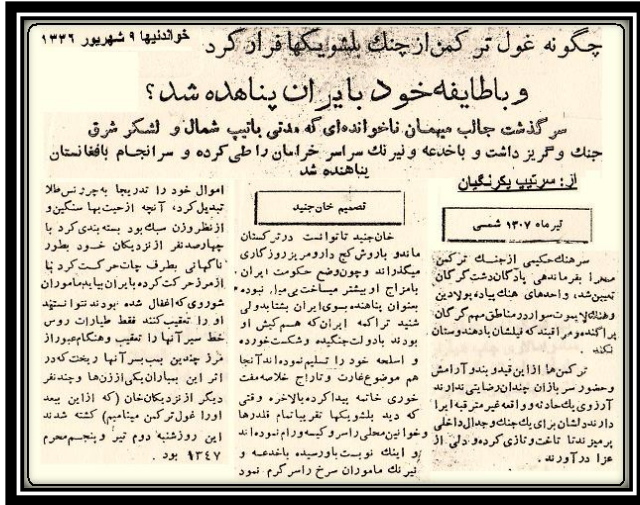 خواندنیها ۹ شهریور ۱۳۳۶
چگونه غول ترکمن از چنك بلشویکها فرار کرد
و با طایفه خود بایران پناهنده شد؟
سرگذشت جالب میهمان ناخوانده‌ای که مدتی باتیپ شمال و لشکر شرق
جنك و گریز داشت و باخدعه و نیرنك سراسر خراسان را طی کرده و سرانجام بافغانستان
پناهنده شد
از: سرتیپ یکرنگیان
تیرماه ۱۳۰۷ شمسی
سرهنك حکیمی ازجنك ترکمن
صحرا بفرماندهی پادگان دشت گرگان
تعیین شد، واحدهای هنك پیاده پولادین
وهنك لایموت سوار در مناطق مهم گرگان
پراکنده و مراقبند که فیلشان یاد هندوستان
نکند.
ترکمن‌ها از این قید و بند و آرامش
وحضور سربازان چندان رضایتی ندارند
آرزوی یك حادثه و واقعه غیر مترقبه ایرا
دارند دلشان برای یك جنك و جدال داخلی
پر میزند تا تاخت و تازی کرده و دلی از
عزا درآورند.
تصمیم خان جنید
خان جنید تا توانست در ترکستان
ماند و باروش کج دار و مریز روزگاری
میگذراند و چون وضع حکومت ایران
بامزاج او بیشتر میساخت بی میل نبوده
بعنوان پناهنده بسوی ایران بشتابد ولی
شنید تراکمه ایران که هم کیش او
بودند بادولت جنگیده و شکست خورده
و اسلحه خود را تسلیم نموده‌اند آنجا
هم موضوع غارت و تاراج خلاصه مفت
خوری خاتمه پیدا کرده بالاخره وقتی
که دید بلشویکها تقریبا تمام قلدرها
و خوانین محلی را سر و کیسه و رام نموده‌اند
و اینك نوبت باو رسیده باخدعه و
نیرنك ماموران سرخ را سرگرم نمود
اموال خود را تدریجا به چروتس طلا
تبدیل کرد، آنچه از حیث بها سنگین و
از نظر وزن سبك بود بسته بندی کرد با
چهارصد نفر از نزدیکان خود بطور
ناگهانی بطرف چات حرکت کرد تا
از مرز حرکت کرده بایران بیاید ماموران
شوروی که اغفال شده بودند نتوانستند
او را تعقیب کنند فقط طیارات روس
خط سیر آنها را تعقیب و هنگام عبور از
مرز چندین بمب بسر آنها ریخت که در
اثر این بمباران یکی از زن‌ها و چند نفر
دیگر از نزدیکان خان (که از این ببعد
اورا غول ترکمن مینامیم) کشته شدند
این روز شنبه دوم تیر و پنجم محرم
۱۳۴۷ بود.